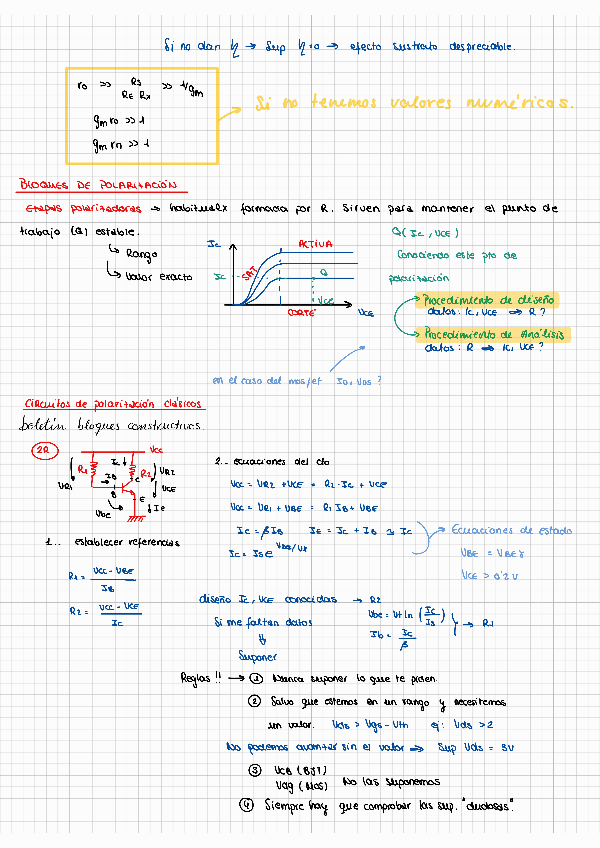 Si no dan η → Sup η=0 → efecto sustrato despreciable.
ro >> RS >> 1/gm
RE RX
gm ro >> 1
gm rπ >> 1
Si no tenemos valores numéricos.
BLOQUES DE POLARIZACIÓN
Etapas polarizadoras → habitualx formada por R. Sirven para mantener el punto de
trabajo (Q) estable.
↳ Rango
↳ Valor exacto
Ic
ACTIVA
SAT
Ic
Q
VCE
CORTE
VCE
Q( Ic, VCE )
Conociendo este pto de
polarización
→ Procedimiento de diseño
datos: Ic, VCE ⇒ R ?
→ Procedimiento de Análisis
datos: R ⇒ Ic, VCE ?
en el caso del mosfet ID, VDS ?
Circuitos de polarización clásicos
boletín bloques constructivos.
2R
Vcc
R1
Ic
R2
VR2
VR1
IB
C
B
VCE
E
Vbe
Ie
1.. establecer referencias
R1 = VCC - VBE / IB
R2 = VCC - VCE / IC
2.. ecuaciones del cto
Vcc = VR2 + VCE = R2 · Ic + VCE
Vcc = VR1 + VBE = R1 IB + VBE
Ic = β IB IE = Ic + IB ≃ Ic
Ic = IS e^VBE/Vt
→ Ecuaciones de estado
VBE = VBEγ
VCE > 0'2V
diseño Ic, VCE conocidas → R2
Si me faltan datos
⇓
Suponer
Vbe = Vt ln (Ic/Is)
Ib = Ic/β
→ R1
Reglas !! → ① Nunca suponer lo que te piden.
② Salvo que estemos en un rango y necesitemos
un valor. Vds > Vgs - Vth ej: Vds > 2
No podemos avanzar sin el valor ⇒ Sup Vds = 3V
③ VCB (BJT)
Vdg (MOS) No las suponemos
④ Siempre hay que comprobar las sup. "dudosas".